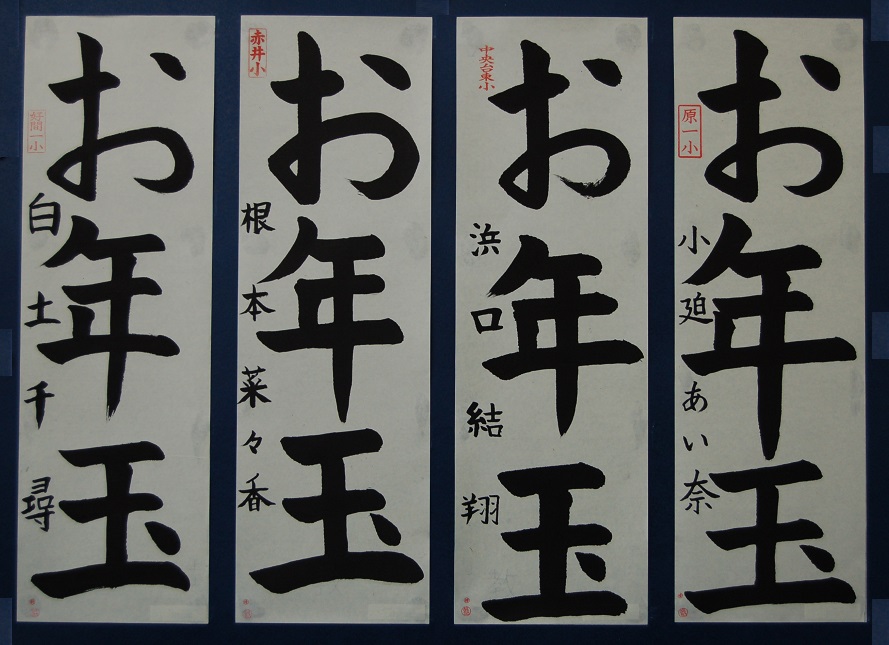 原一小
お年玉
小廹あい奈
中央台東小
お年玉
浜口結翔
赤井小
お年玉
根本菜々香
好間一小
お年玉
白土千尋